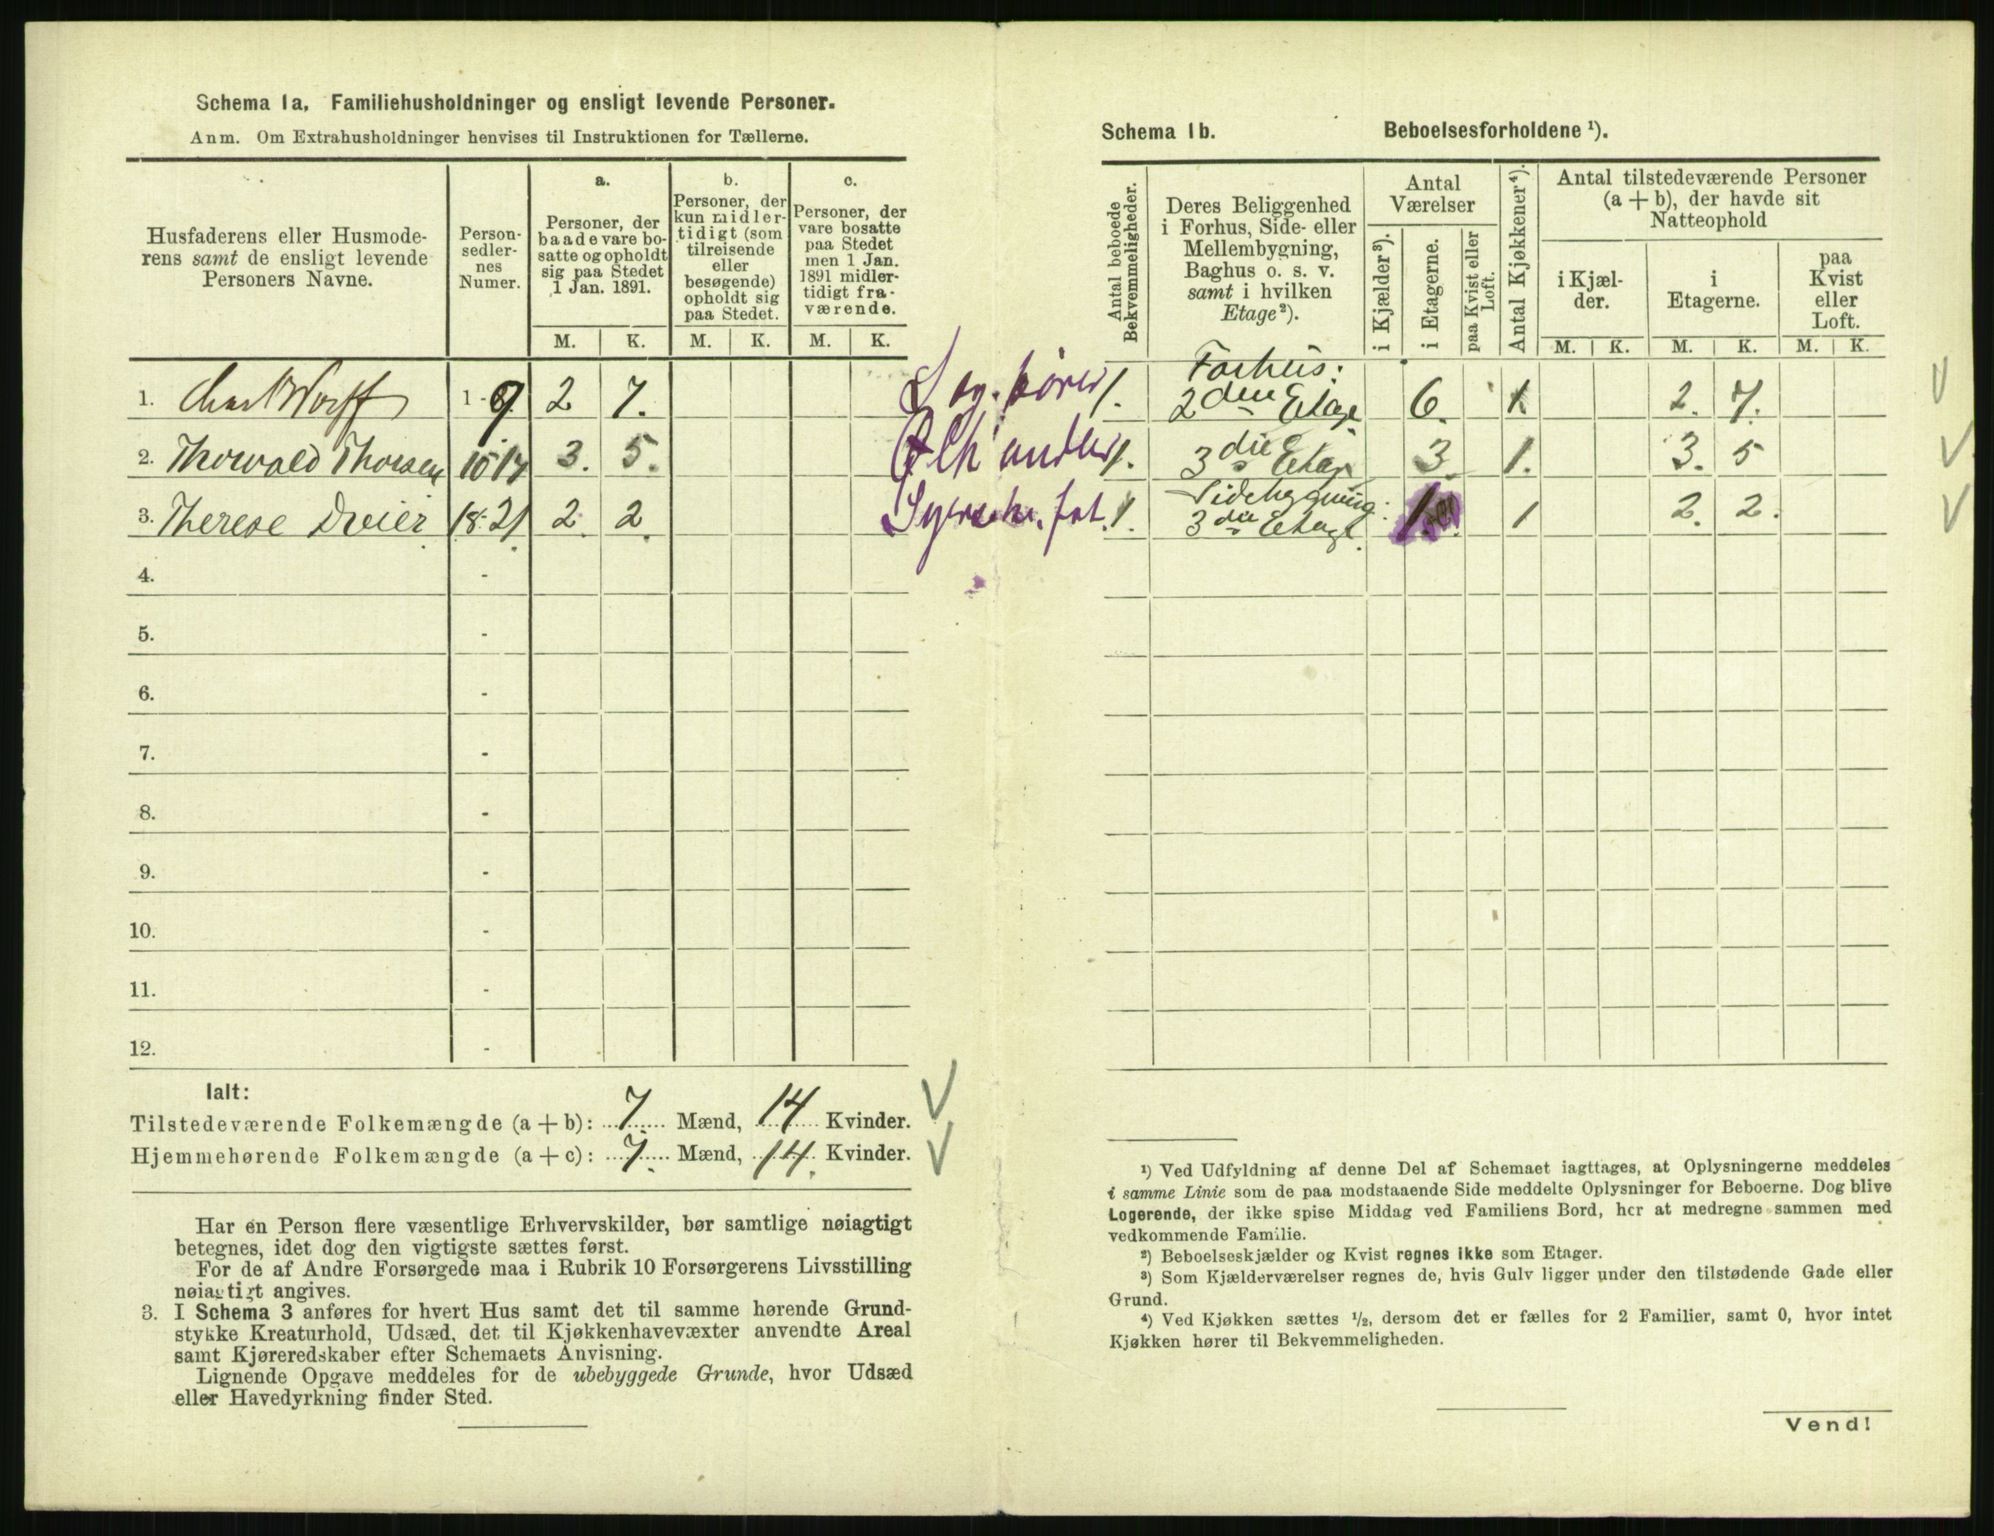 Schema 1a. Familiehusholdninger og ensligt levende Personer.
Anm. Om Extrahusholdninger henvises til Instruktionen for Tællerne.
Husfaderens eller Husmode-
rens samt de ensligt levende
Personers Navne.
Person-
sedler-
nes
Numer.
a.
Personer, der
baade vare bo-
satte og opholdt
sig paa Stedet
1 Jan. 1891.
b.
Personer, der
kun midler-
tidigt (som
tilreisende
eller
besøgende)
opholdt sig
paa Stedet.
c.
Personer, der
vare bosatte
paa Stedet
men 1 Jan.
1891 midler-
tidigt fra-
værende.
M. K. M. K. M. K.
1. Worff 1-9. 2 7.
2. Thorvald Thorsen 10-17 3. 5.
3. Therese Dreier 18-21 2. 2.
4. -
5. -
6. -
7. -
8. -
9. -
10. -
11. -
12. -
Ialt:
Tilstedeværende Folkemængde (a + b): 7 Mænd, 14 Kvinder.
Hjemmehørende Folkemængde (a + c): 7 Mænd, 14 Kvinder.
Har en Person flere væsentlige Erhvervskilder, bør samtlige nøiagtigt
betegnes, idet dog den vigtigste sættes først.
For de af Andre Forsørgede maa i Rubrik 10 Forsørgerens Livsstilling
nøiagtigt angives.
3. I Schema 3 anføres for hvert Hus samt det til samme hørende Grund-
stykke Kreaturhold, Udsæd, det til Kjøkkenhavevæxter anvendte Areal
samt Kjøreredskaber efter Schemaets Anvisning.
Lignende Opgave meddeles for de ubebyggede Grunde, hvor Udsæd
eller Havedyrkning finder Sted.
Schema 1b. Beboelsesforholdene ¹).
Antal beboede
Bekvemmeligheder.
Deres Beliggenhed
i Forhus, Side- eller
Mellembygning,
Baghus o. s. v.
samt i hvilken
Etage²).
Antal
Værelser
i Kjælder³).
i Etagerne.
paa Kvist eller
Loft.
Antal Kjøkkener⁴).
Antal tilstedeværende Personer
(a + b), der havde sit
Natteophold
i Kjæl-
der.
i
Etagerne.
paa
Kvist
eller
Loft.
M. K. M. K. M. K.
Forhus:
1. 2den Etage 6. 1. 2. 7.
1. 3die Etage 3. 1. 3. 5
Sidebygning:
1. 3die Etage. 1. 1 2. 2.
¹) Ved Udfyldning af denne Del af Schemaet iagttages, at Oplysningerne meddeles
i samme Linie som de paa modstaaende Side meddelte Oplysninger for Beboerne. Dog blive
Logerende, der ikke spise Middag ved Familiens Bord, her at medregne sammen med
vedkommende Familie.
²) Beboelseskjælder og Kvist regnes ikke som Etager.
³) Som Kjælderværelser regnes de, hvis Gulv ligger under den tilstødende Gade eller
Grund.
⁴) Ved Kjøkken sættes ½, dersom det er fælles for 2 Familier, samt 0, hvor intet
Kjøkken hører til Bekvemmeligheden.
Vend!